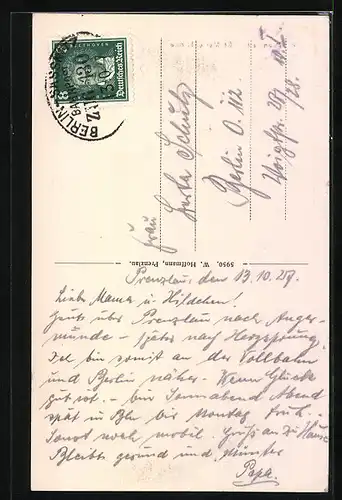 BERLIN
BAHNPOST
Deutsches Reich
8
Frau
Herta Schulz
Berlin O. 112
Voigtstr. 28 v. I.
5950. W. Hoffmann, Prenzlau.
Prenzlau, den 13.10.27.
Liebe Mama u. Hildchen!
Heute über Prenzlau nach Anger-
münde – später nach Herzsprung.
Sei bin somit an der Vollbahn
und Berlin näher. Wenn Glück
gut ist. – bin Sonnabend Abend
spät in Bln bis Montag früh. –
Sonst noch mobil. Gruß an zu Hause
Bleibt gesund und munter
Papa.